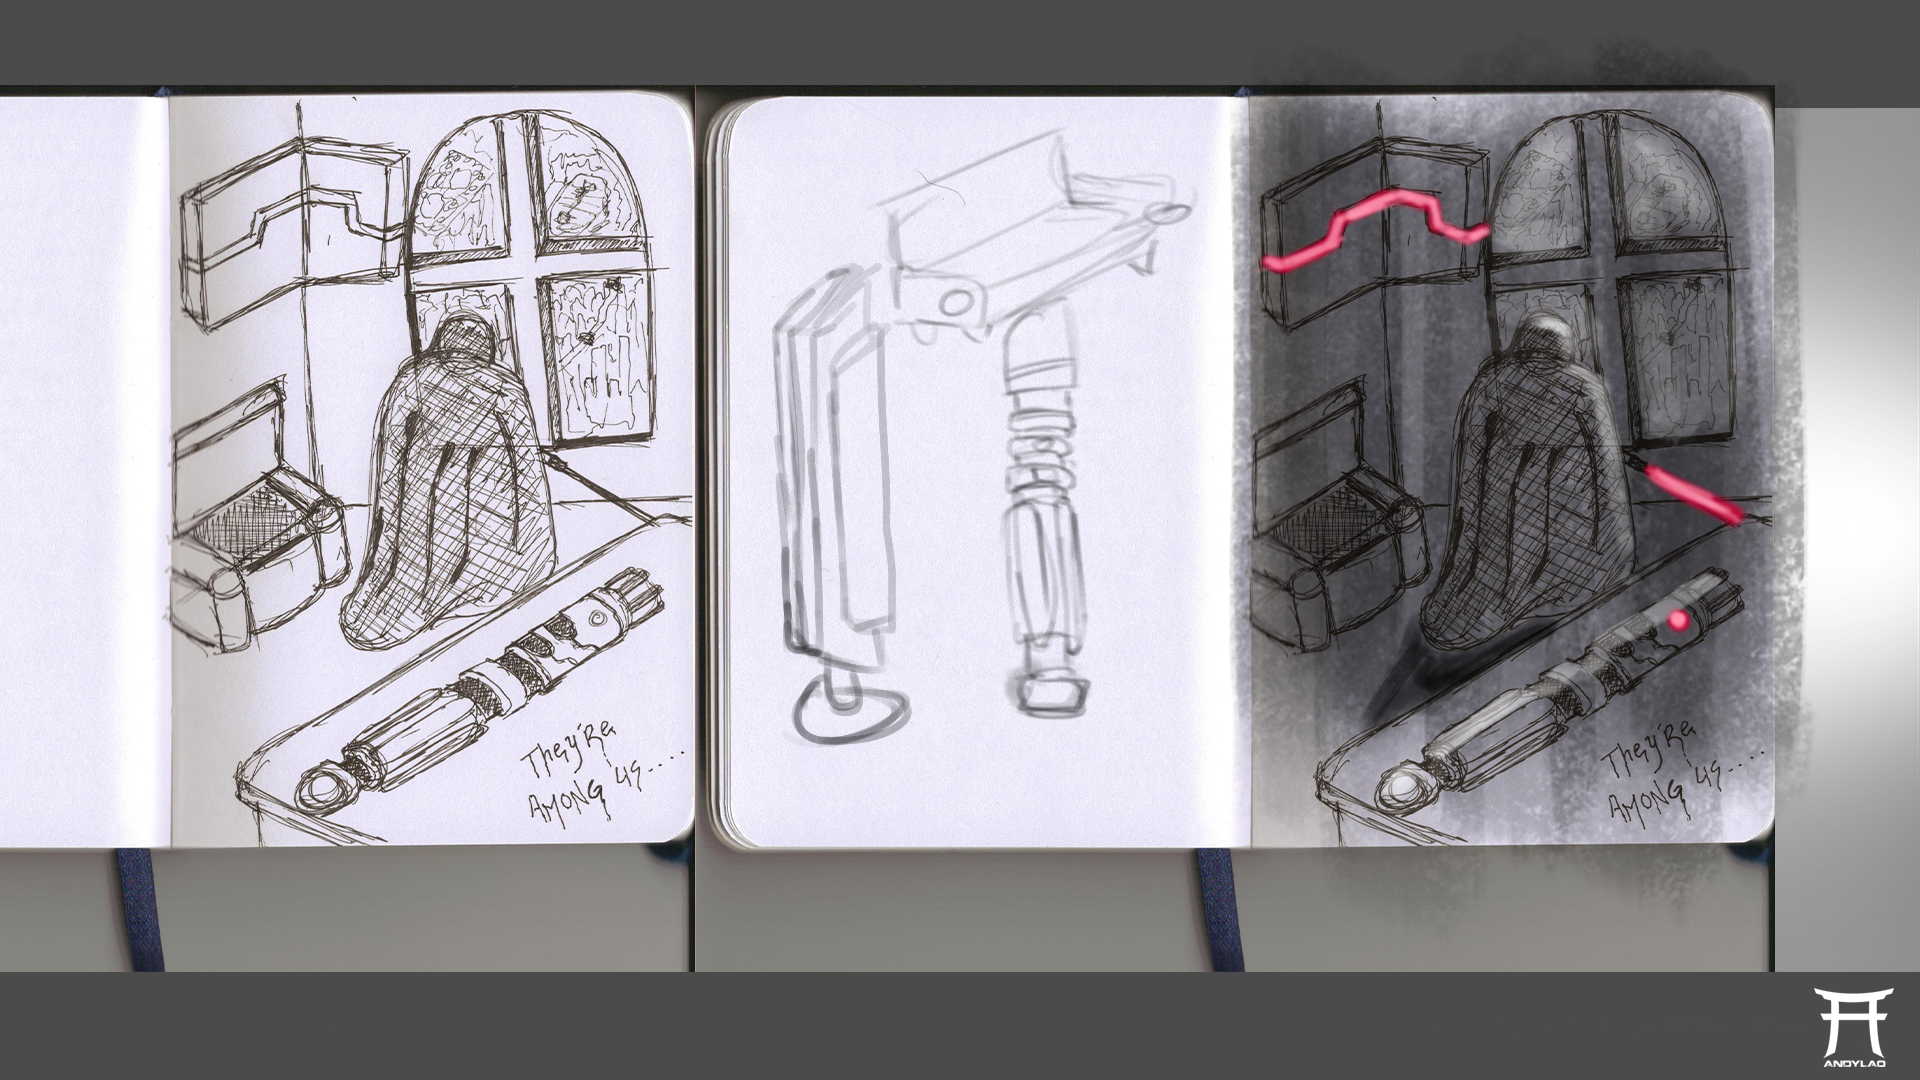 They're
AMONG US....
They're
AMONG US....
ANDYLAD